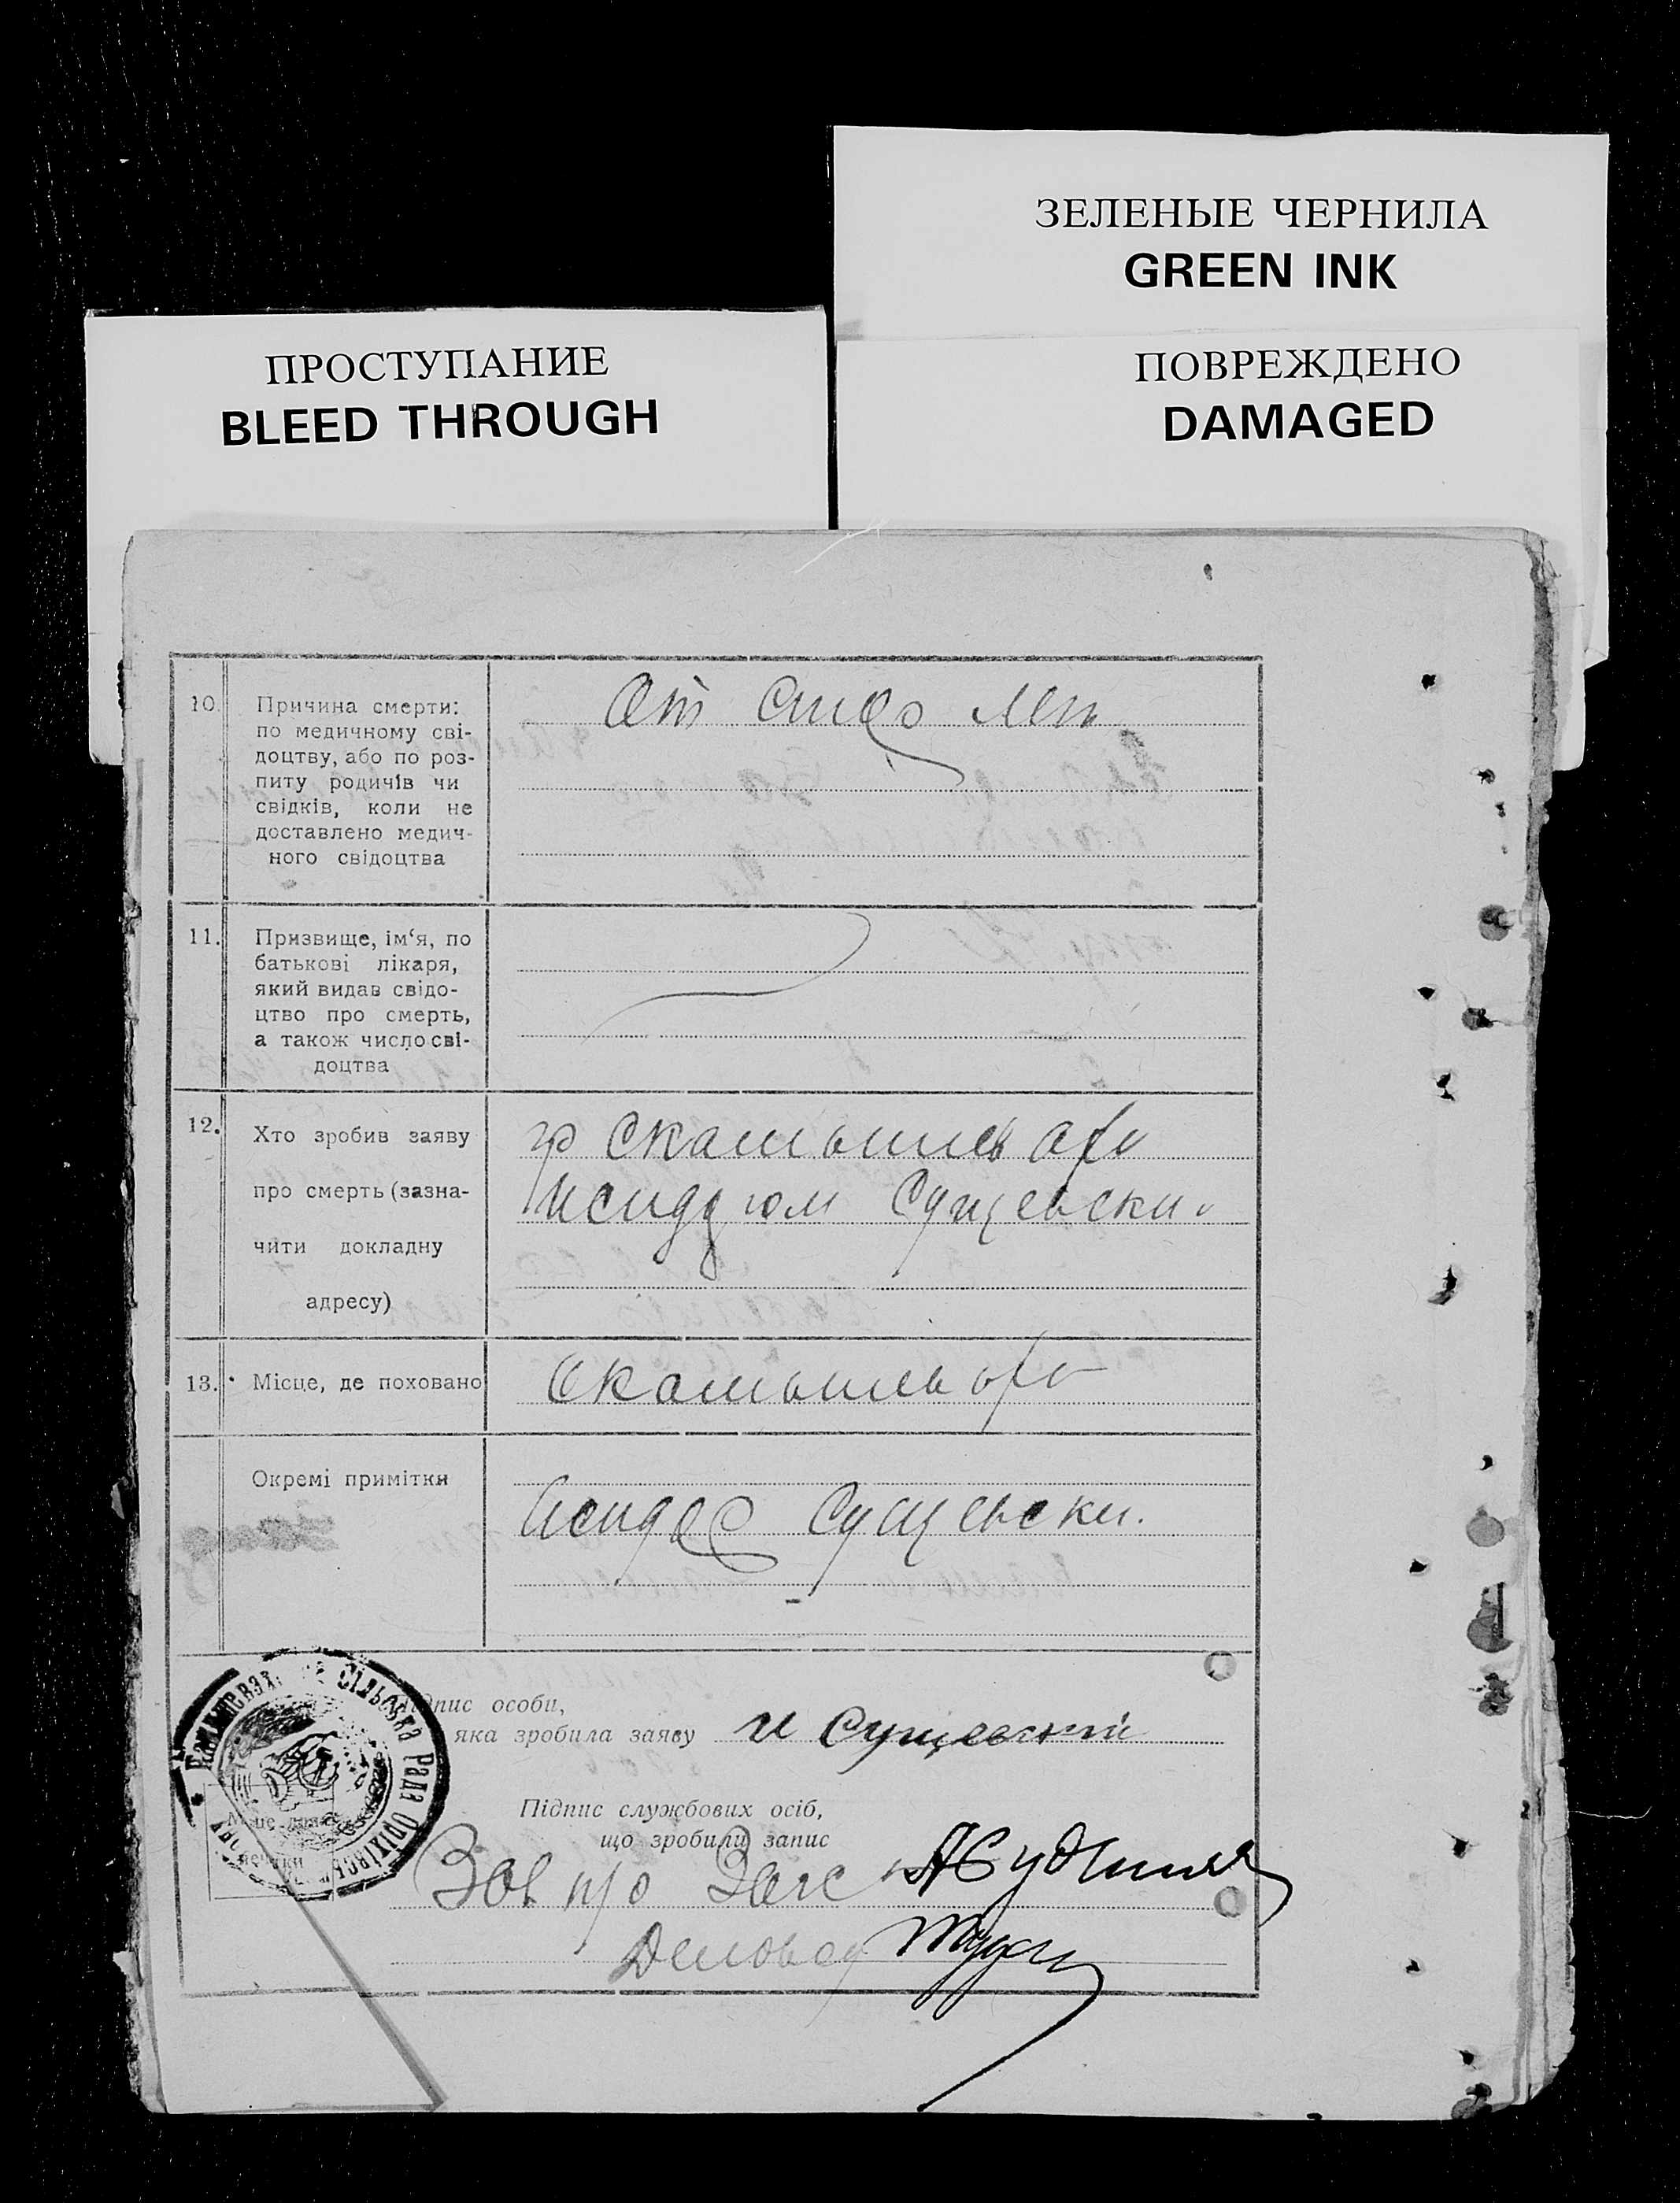 ЗЕЛЕНЫЕ ЧЕРНИЛА
GREEN INK
ПРОСТУПАНИЕ
BLEED THROUGH
ПОВРЕЖДЕНО
DAMAGED
10. Причина смерти:
по медичному сві-
доцтву, або по роз-
питу родичів чи
свідків, коли не
доставлено медич-
ного свідоцтва
От
11. Призвище, ім‘я, по
батькові лікаря,
який видав свідо-
цтво про смерть,
а також число сві-
доцтва
12. Хто зробив заяву
про смерть (зазна-
чити докладну
адресу)
гр
Сущевски
13. Місце, де поховано
Окремі примітки
Исидор Сущевски.
Підпис особи,
яка зробила заяву И Сущевский
Сільська Рада Оріхівськ
Підпис службових осіб,
що зробили запис
Зав п/о Загс
Деловод